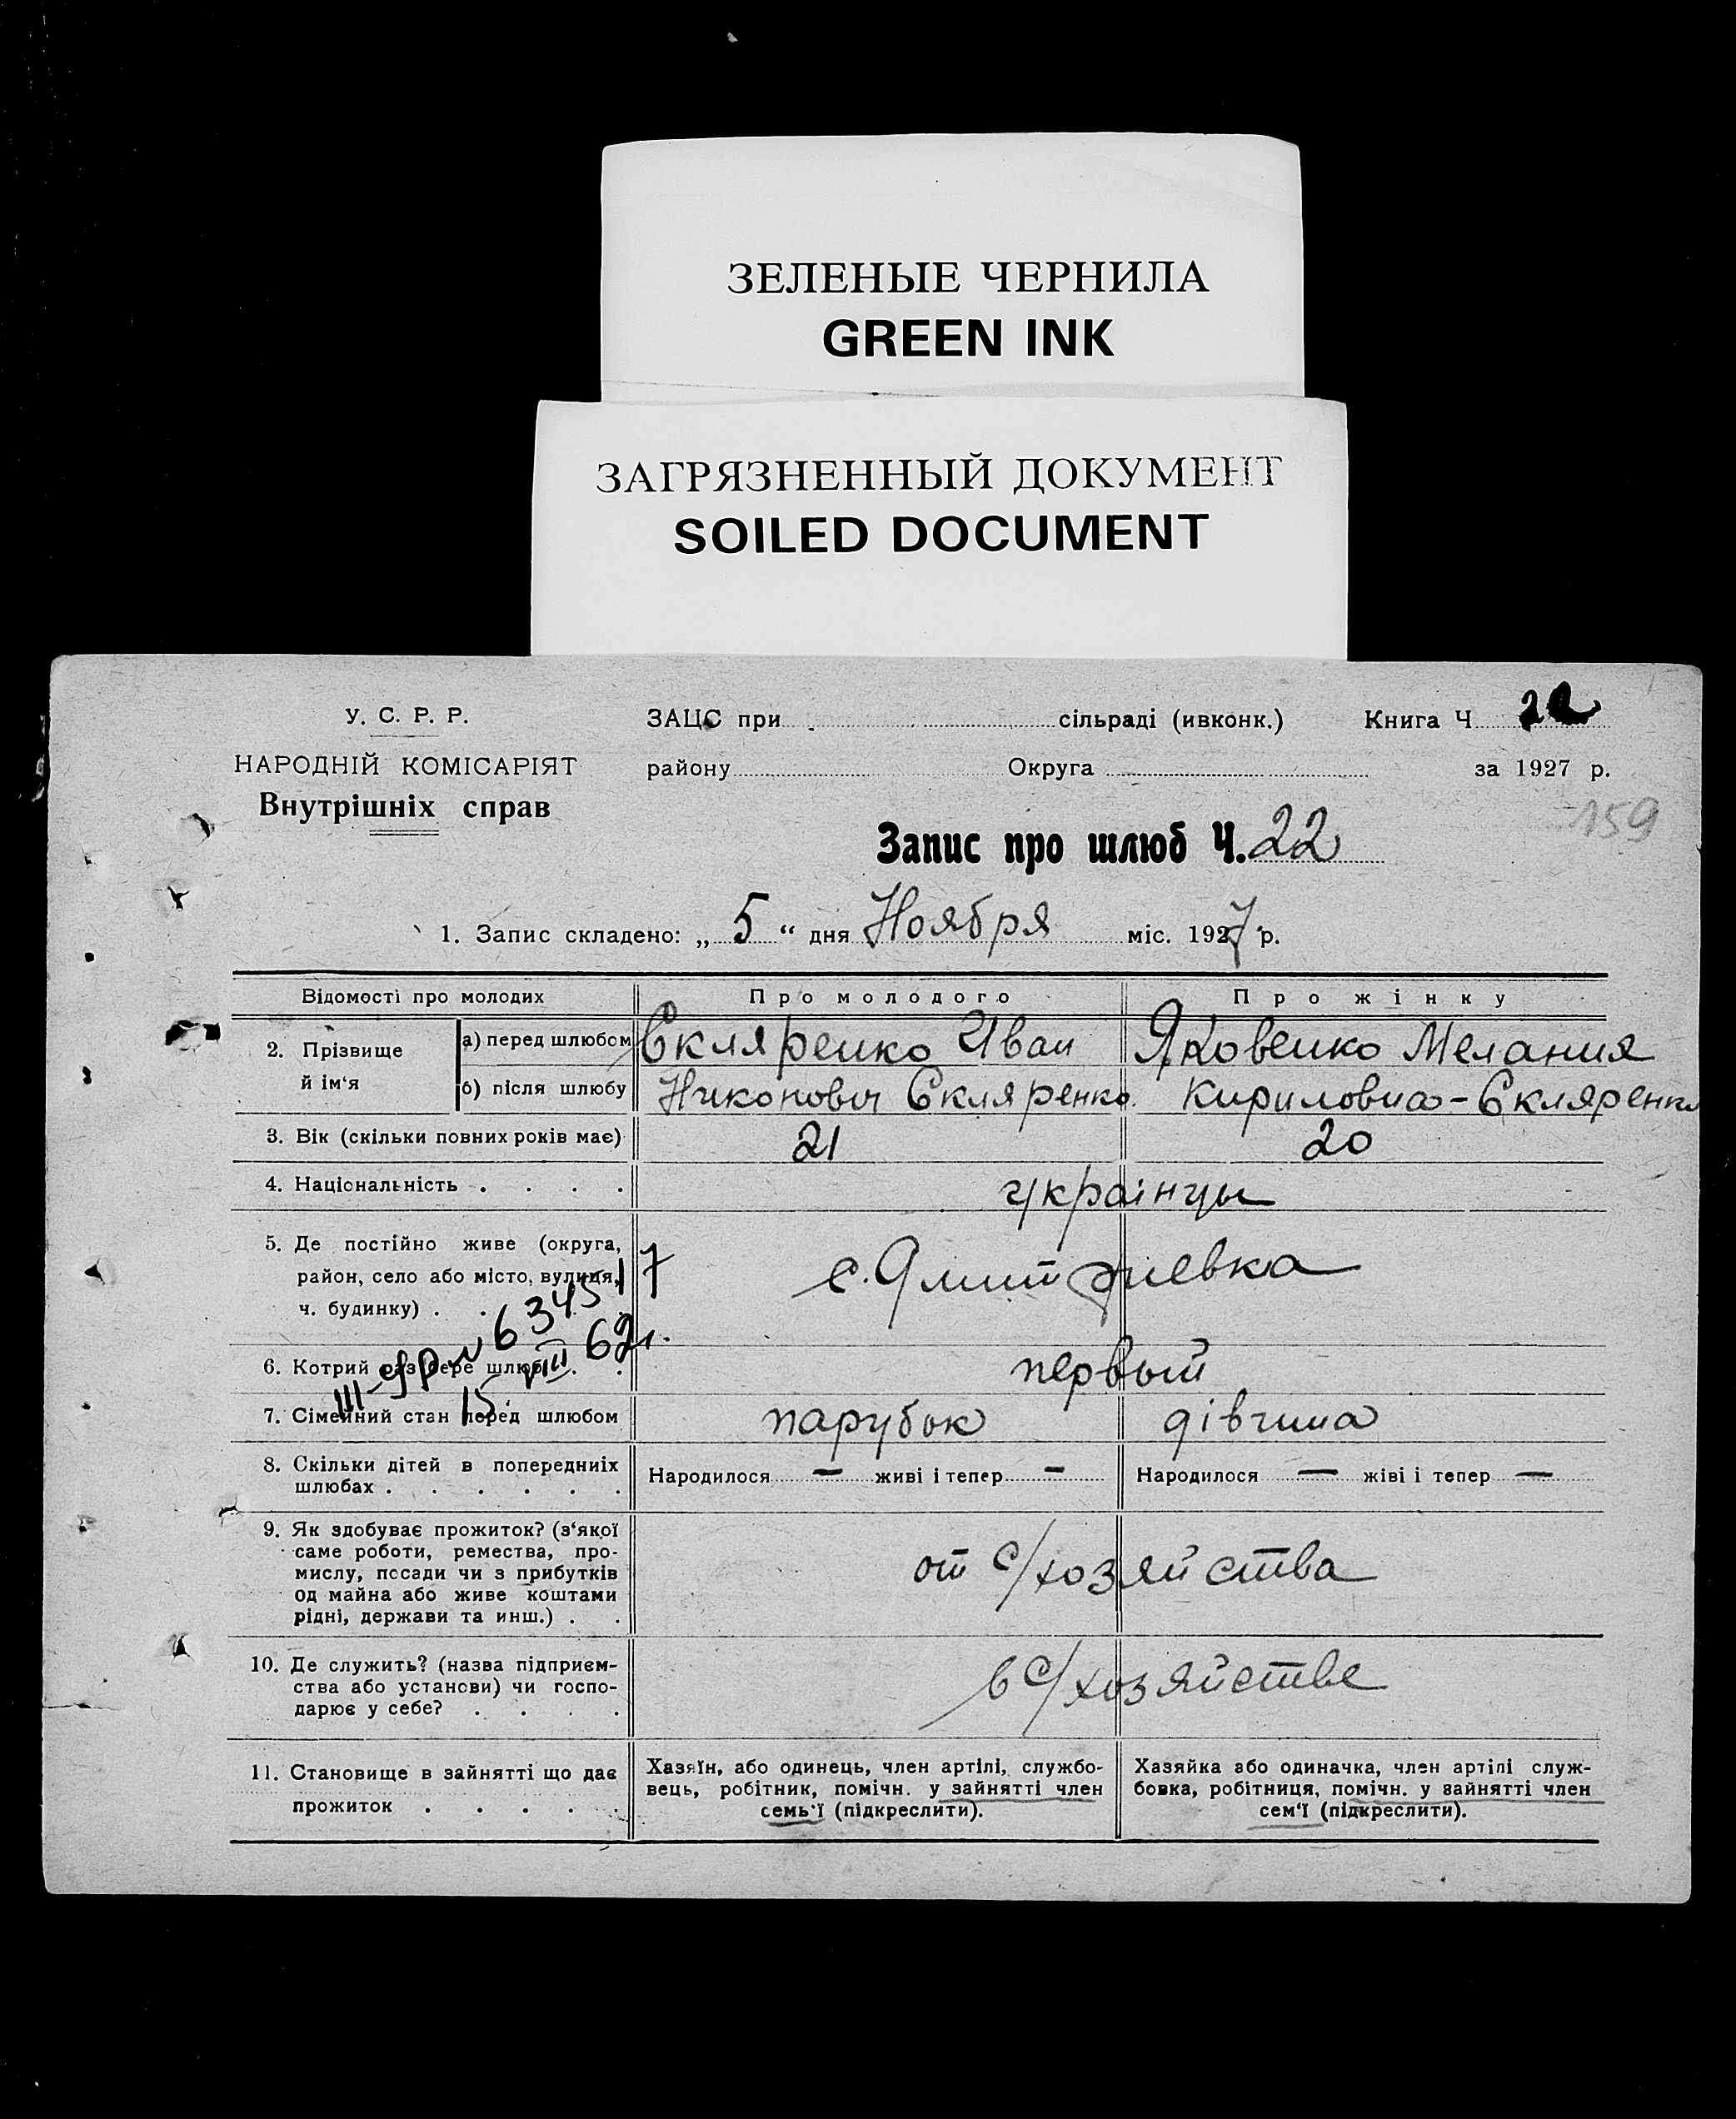 ЗЕЛЕНЫЕ ЧЕРНИЛА
GREEN INK
ЗАГРЯЗНЕННЫЙ ДОКУМЕНТ
SOILED DOCUMENT
У. С. Р. Р.
НАРОДНІЙ КОМІСАРІЯТ
Внутрішніх справ
ЗАЦС при сільраді (ивконк.) Книга Ч 22
району Округа за 1927 р.
159
Запис про шлюб Ч. 22
1. Запис складено: „ 5 “ дня Ноября міс. 1927 р.
Відомості про молодих Про молодого Про жінку
2. Прізвище й ім‘я
а) перед шлюбом Скляренко Иван Яковенко Мелания
б) після шлюбу Никонович Скляренко. Кириловна - Скляренко
3. Вік (скільки повних років має) 21 20
4. Національність . . . . українцы
5. Де постійно живе (округа,
район, село або місто, вулиця,
ч. будинку) .
с. Дмитриевка
6. Котрий раз бере шлюб . . первый
III-ФР № 634517
15 VIII 62 г.
7. Сімейний стан перед шлюбом парубок дівчина
8. Скільки дітей в попередниіх
шлюбах . . . . . .
Народилося — живі і тепер — Народилося — жіві і тепер —
9. Як здобуває прожиток? (з‘якої
саме роботи, ремества, про-
мислу, посади чи з прибутків
од майна або живе коштами
рідні, держави та инш.) . .
от с/хозяйства
10. Де служить? (назва підприєм-
ства або установи) чи госпо-
дарює у себе? . . . .
в с/хозяйстве
11. Становище в зайнятті що дає
прожиток . . . . .
Хазяїн, або одинець, член артілі, службо-
вець, робітник, помічн. у зайнятті член
семь‘ї (підкреслити).
Хазяйка або одиначка, член артілі служ-
бовка, робітниця, помічн. у зайнятті член
сем‘ї (підкреслити).